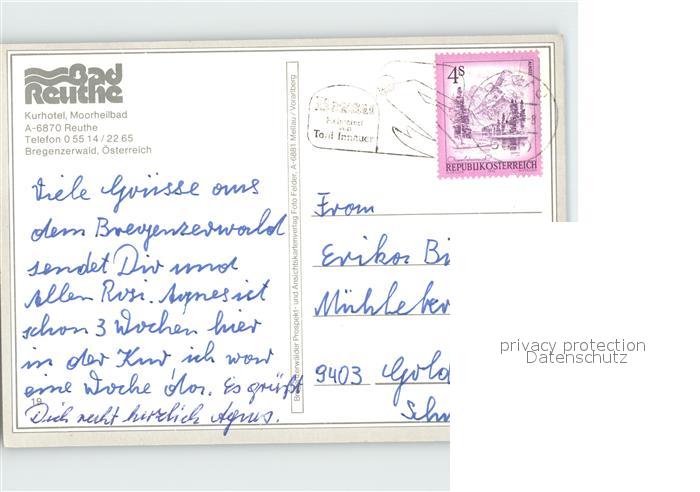 Bad
Reuthe
Kurhotel, Moorheilbad
A-6870 Reuthe
Telefon 0 55 14 / 22 65
Bregenzerwald, Österreich
Viele Grüsse aus
dem Bregenzerwald
sendet Dir und
Allen Rosi. Agnes ist
schon 3 Wochen hier
in der Kur ich war
eine Woche da. Es grüßt
Dich recht herzlich Agnes.
19
Bregenzerwälder Prospekt- und Ansichtskartenverlag Foto Felder, A-6881 Mellau / Vorarlberg
Toni Innauer
4S
REPUBLIK ÖSTERREICH
From
Erika Bi
Mühleber
9403 Gold
Schw
privacy protection
Datenschutz